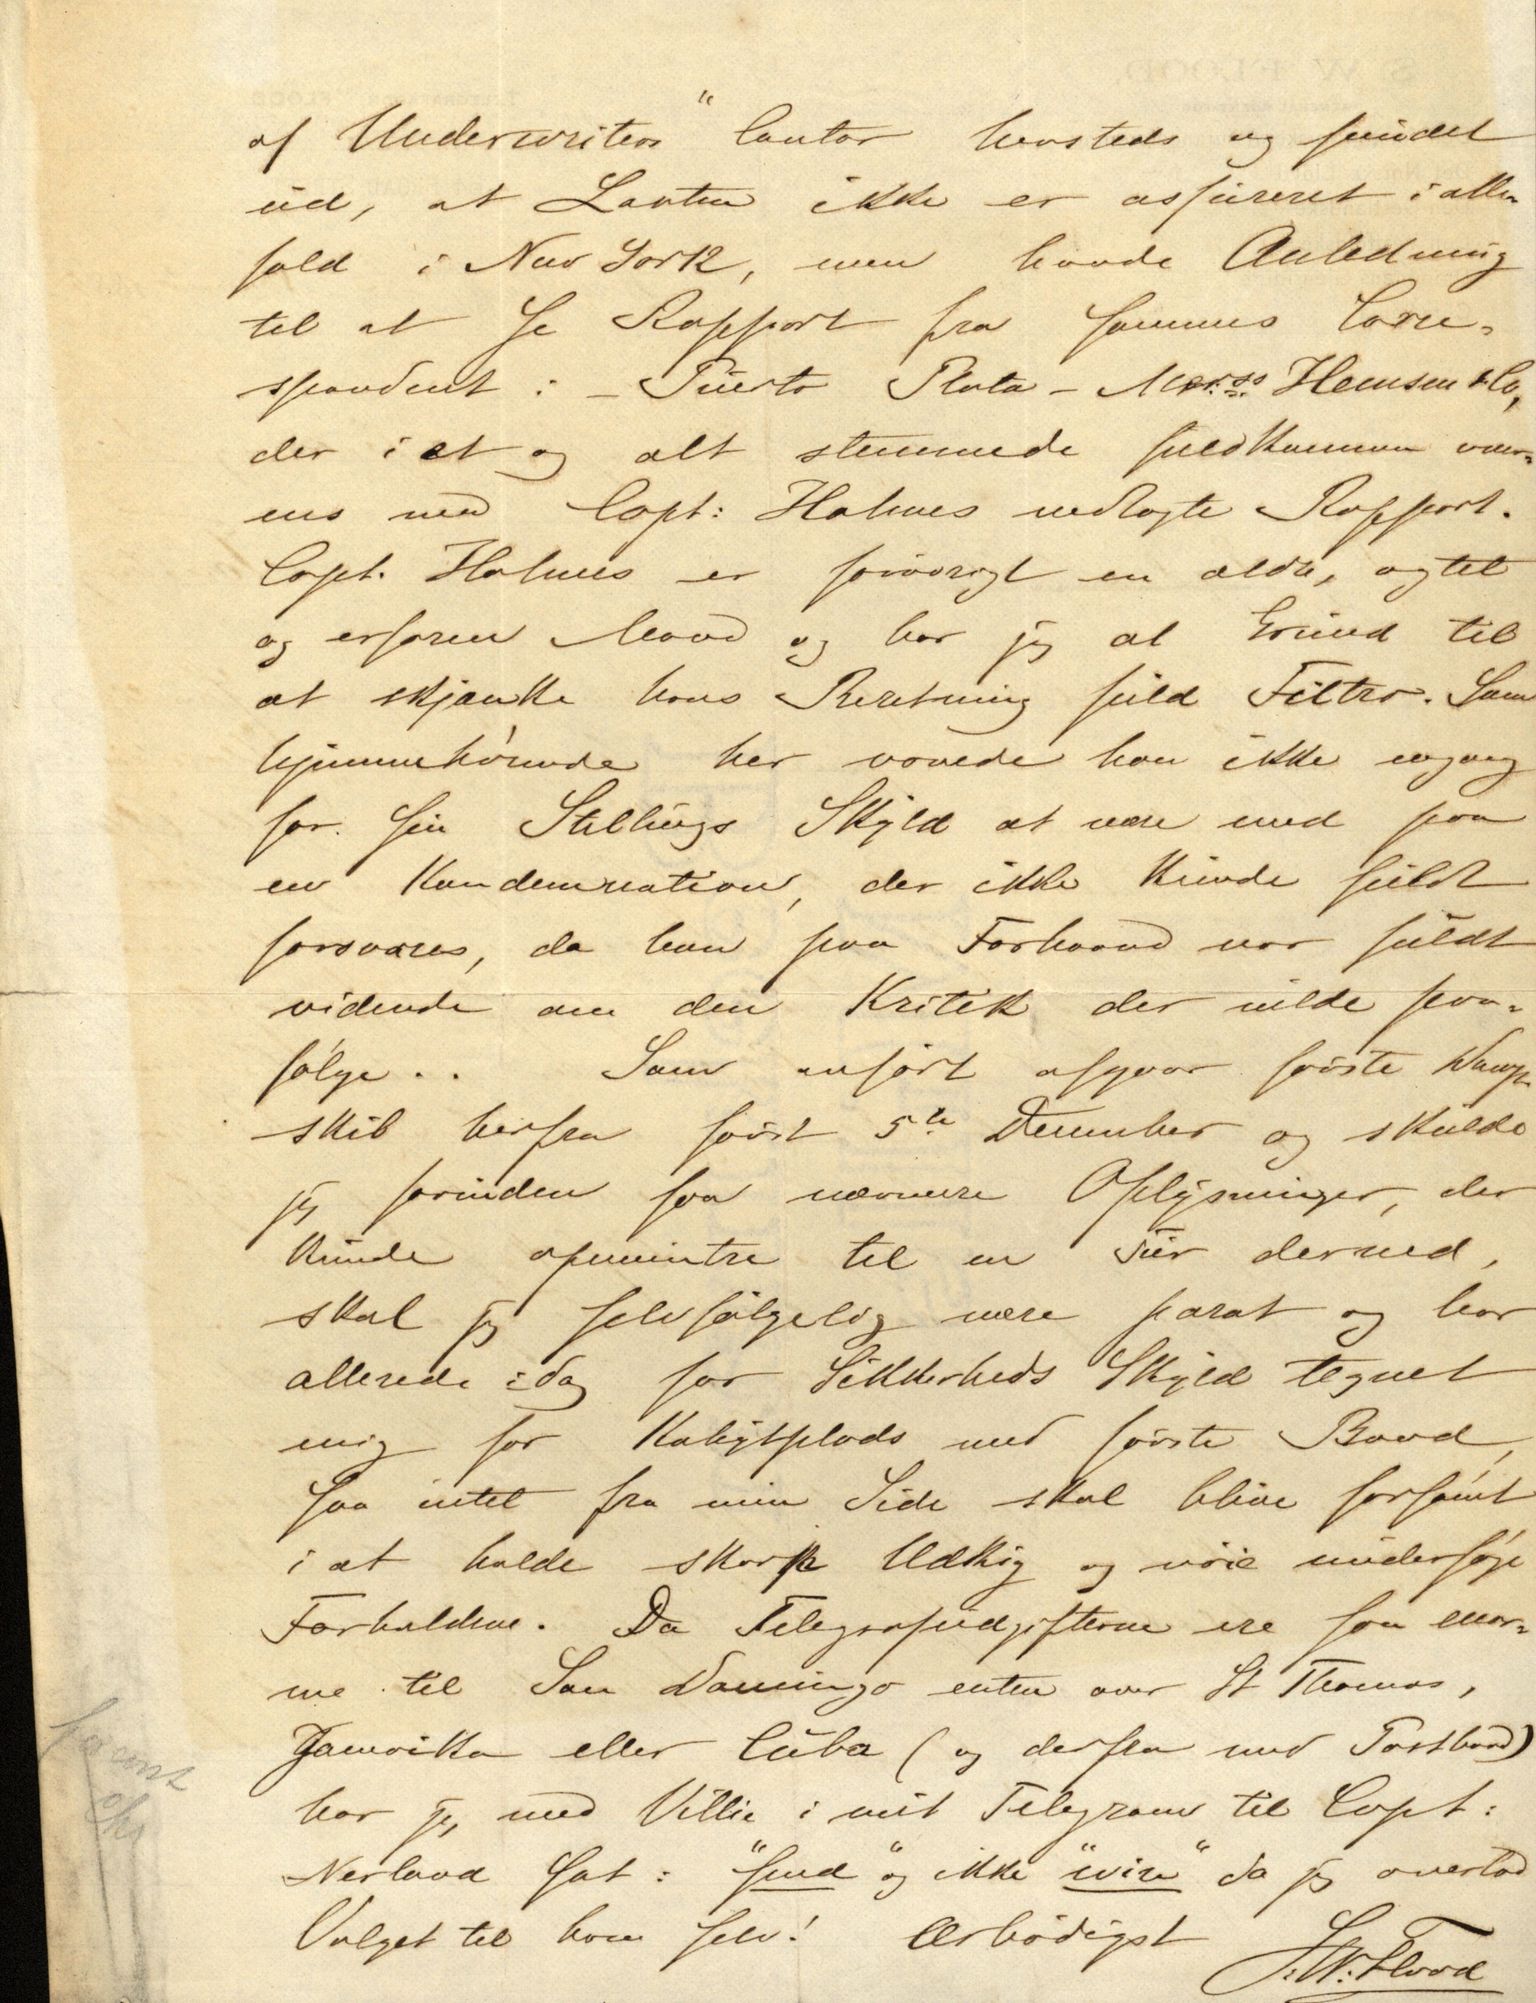 af Underwriters" Contor hersteds og fundet
ud, at Lasten ikke er assureret i alle-
fald i New York, men havde Anledning
til at se Rapport fra sammes Corre-
spondent i - Puerto Plata - Mess:rs Hemsen & Co,
der i et og alt stemmede fuldkommen over-
ens med Capt: Holmes nedlagte Rapport.
Capt. Holmes er forøvrigt en ældre, agtet
og erfaren Mand og har jeg al Grund til
at skjænke hans Beretning fuld Tiltro. Som
hjemmehørende her vovede han ikke engang
for sin Stillings Skyld at være med paa
en Kondemnation, der ikke kunde fuldt
forsvares, da han paa Forhaand var fuldt
vidende om den Kritik der vilde paa-
følge.. Som anført afgaar første Damp-
skib herfra først 5te December og skulde
jeg forinden faa nærmere Oplysninger, der
kunde opmuntre til en Tur derned,
skal jeg selvfølgelig være parat og har
allerede idag for Sikkerheds Skyld tegnet
mig for Kahytsplads med første Baad,
saa intet fra min Side skal blive forsømt
i at holde skarp Udkig og nøie undersøge
Forholdene. Da Telegrafudgifterne ere saa enor-
me til San Domingo enten over St Thomas,
Jamaika eller Cuba (og derfra med Postbaad)
har jeg med Villie i mit Telegram til Capt:
Nerland sat: "send" og ikke "wire" da jeg overlod
Valget til ham selv! Ærbødigst
S. W. Flood